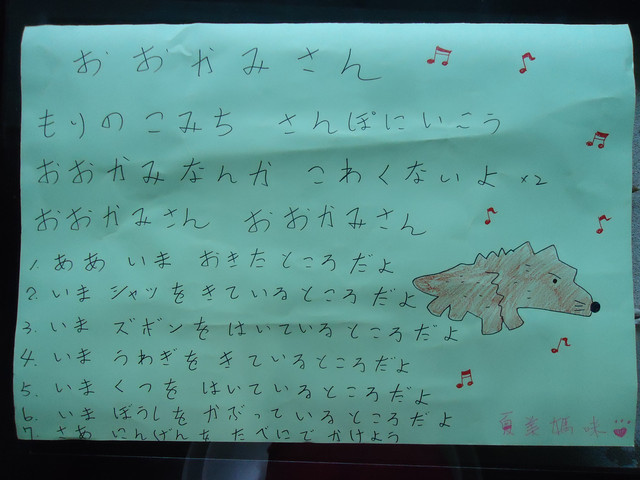 おおかみさん
もりのこみち さんぽにいこう
おおかみなんか こわくないよ ×2
おおかみさん おおかみさん
1. ああ いま おきたところだよ
2. いま シャツをきているところだよ
3. いま ズボンを はいているところだよ
4. いま うわぎを きているところだよ
5. いま くつを はいているところだよ
6. いま ぼうしをかぶっているところだよ
7. さあ にんげんを たべにでかけよう